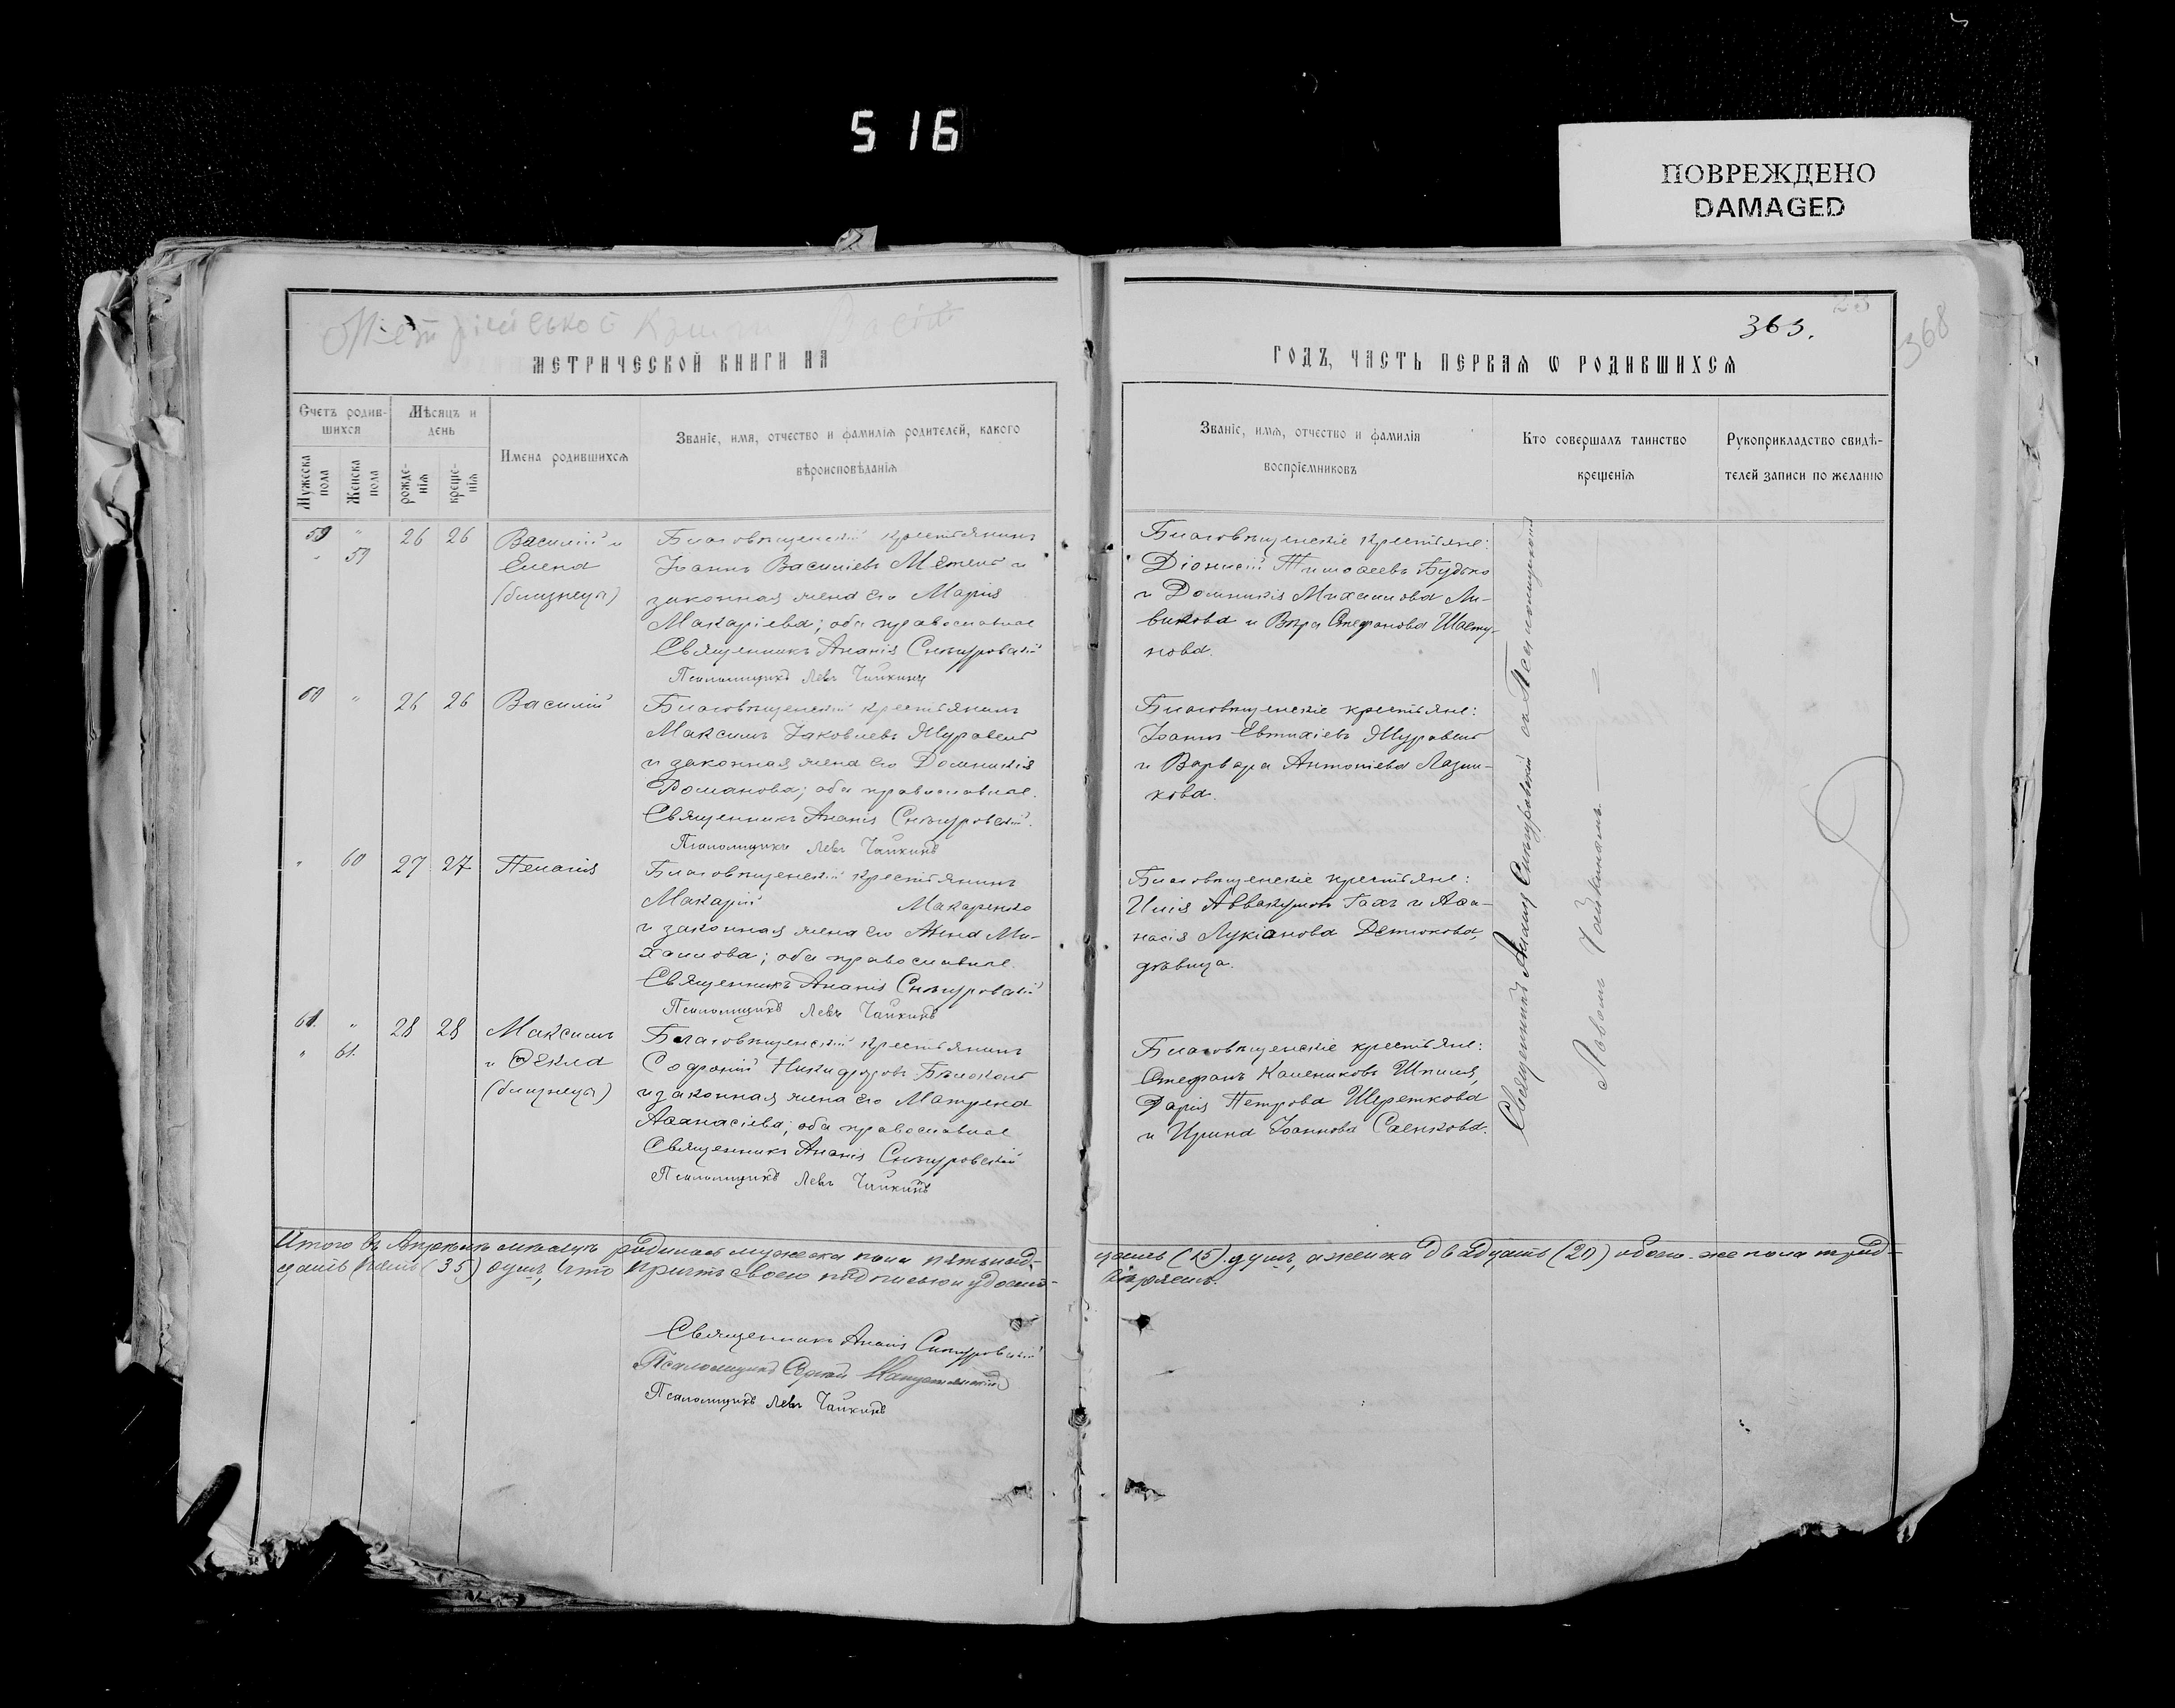 516
ПОВРЕЖДЕНО
DAMAGED
363.
368
МЕТРИЧЕСКОЙ КНИГИ НА
ГОДЪ, ЧАСТЬ ПЕРВАЯ Ѡ РОДИВШИХСЯ
Счетъ родив-
шихся
Мѣсяцъ и
день
Мужеска
пола
Женска
пола
рожде-
нія
креще-
нія
Имена родившихся
Званіе, имя, отчество и фамилія родителей, какого
вѣроисповѣданія
Званіе, имя, отчество и фамилія
воспріемниковъ
Кто совершалъ таинство
крещенія
Рукоприкладство свидѣ-
телей записи по желанію
59 " 26 26
" 59
Василій и
Елена
(близнецы)
Благовѣщенскій крестьянинъ
Іоаннъ Васильевъ и
законная жена его Марія
Макаріева; оба православные
Священникъ Ананія Снѣгуровскій
Псаломщикъ Левъ Чайкинъ
Благовѣщенскіе крестьяне:
Діонисій Тимоѳеевъ Будько
и Домникія Михаилова Ли-
викова и Вѣра Стефанова Шасту-
нова.
60 " 26 26
Василій
Благовѣщенскій крестьянинъ
Максимъ Іаковлевъ Журавель
и законная жена его Домникія
Романова; оба православные.
Священникъ Ананія Снѣгуровскій.
Псаломщикъ Левъ Чайкинъ
Благовѣщенскіе крестьяне:
Іоаннъ Евтихіевъ Журавель
и Варвара Антоніева Лазни-
кова.
" 60 27 27
Пелагія
Благовѣщенскій крестьянинъ
Макарій Макаренко
и законная жена его Анна Ми-
хаилова; оба православные.
Священникъ Ананія Снѣгуровскій
Псаломщикъ Левъ Чайкинъ
Благовѣщенскіе крестьяне:
Илія Аввакумовъ Гахъ и Аѳа-
насія Лукіанова Детюкова,
дѣвица.
61. " 28 28
" 61.
Максимъ
и Ѳекла
(близнецы)
Благовѣщенскій крестьянинъ
Софроній Никифоровъ Бѣлоконь
и законная жена его Матрена
Аѳанасіева; оба православные
Священникъ Ананія Снѣгуровскій
Псаломщикъ Левъ Чайкинъ
Благовѣщенскіе крестьяне:
Стефанъ Калениковъ Шпиля,
Дарія Петрова Шереткова
и Ирина Іоаннова Саенкова.
Священникъ Ананія Снѣгуровскій съ Псаломщикомъ
Львомъ Чайкинымъ.
Итого въ Апрѣлѣ мѣсяцѣ родилось мужеска пола пятьнад-
цать (15) душъ, а женска двадцать (20) обоего же пола трид-
цать пять (35) душъ, что причтъ своею подписью и удосто-
вѣряетъ.
Священникъ Ананія Снѣгуровскій
Псаломщикъ Сергій
Псаломщикъ Левъ Чайкинъ